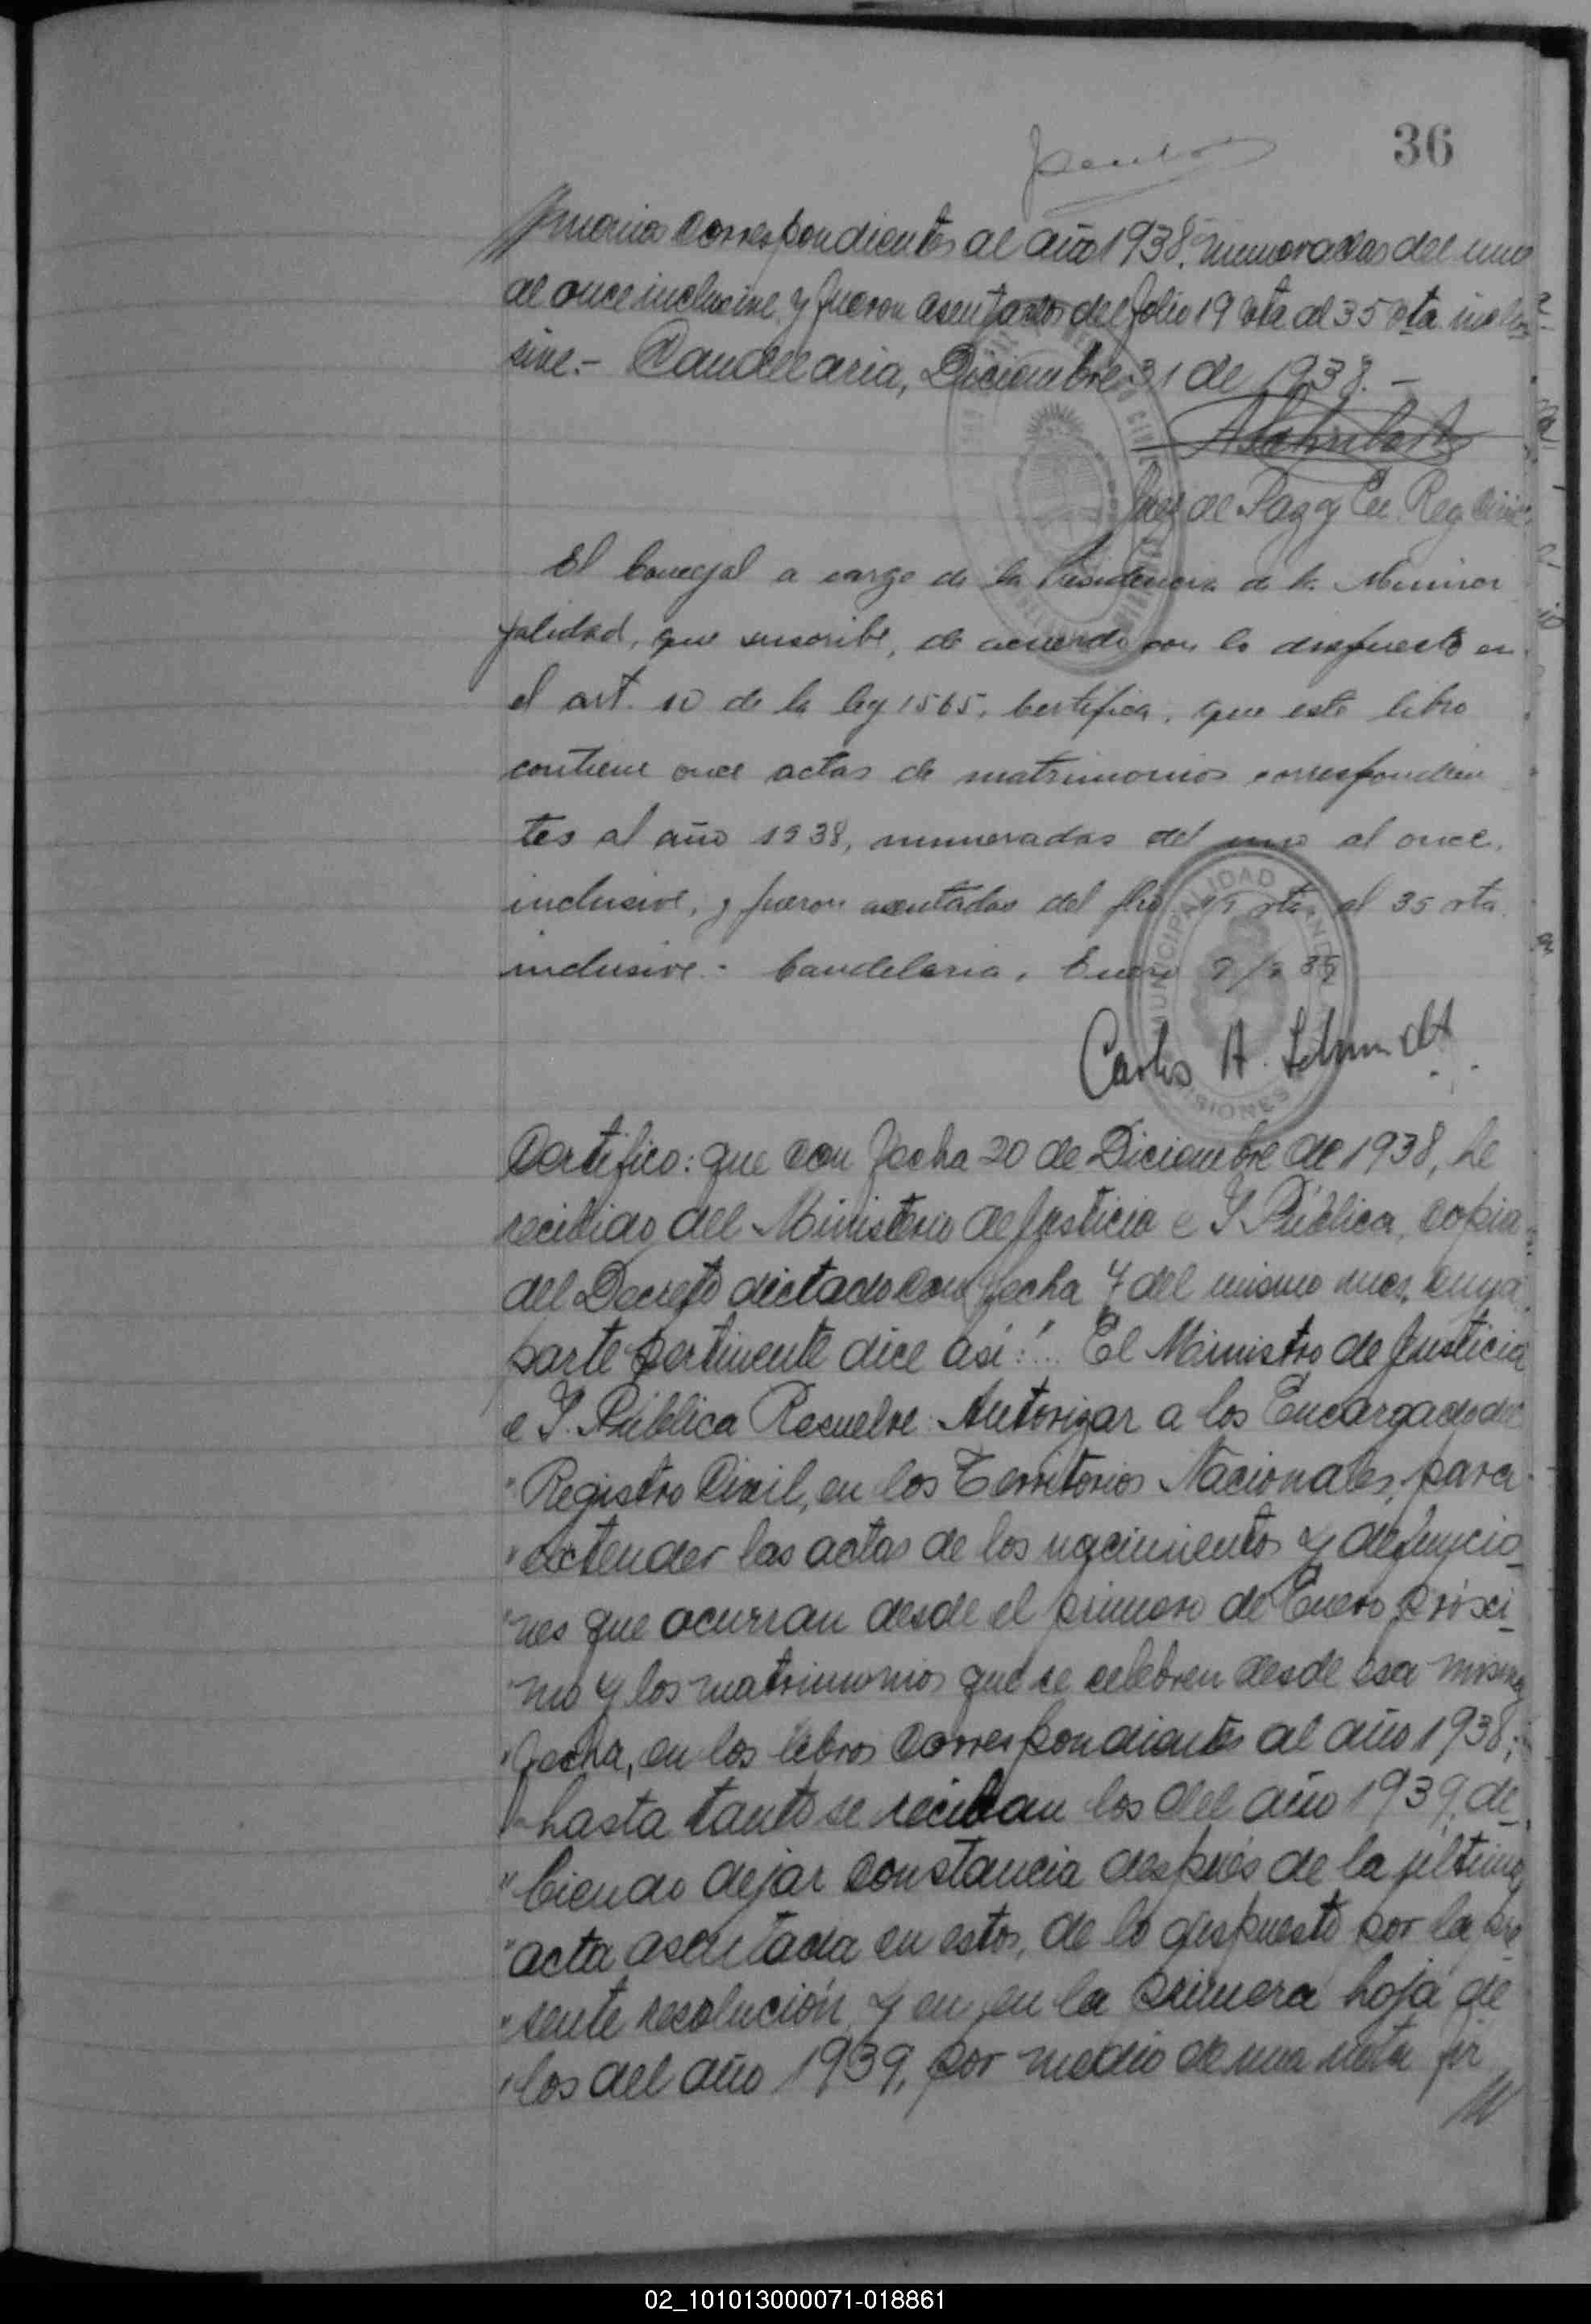 36
correspondientes al año 1938, numeradas del uno
al once inclusive y fueron asentados del folio 19 vta al 35 vta. inclu
sive.- Candelaria, Diciembre 31 de 1938.-
Juez de Paz y En. Reg Civil
El Concejal a cargo de la Presidencia de la Munici
palidad, que suscribe, de acuerdo con lo dispuesto en
el art. 10 de la ley 1565, Certifica, que este libro
contiene once actas de matrimonios correspondien
tes al año 1938, numeradas del uno al once,
inclusive, y fueron asentadas del flio 19 vta, al 35 vta.
inclusive.- Candelaria, Enero
MUNICIPALIDAD
MISIONES
Carlos A. Schmidt
Certifico: que con fecha 20 de Diciembre de 1938, he
recibido del Ministerio de Justicia e I. Pública, copia
del Decreto dictado con fecha 7 del mismo mes, cuya
parte pertinente dice así: "... El Ministro de Justicia
e I. Pública Resuelve: Autorizar a los Encargados del
"Registro Civil, en los Territorios Nacionales, para
"extender las actas de los nacimientos y defuncio_
"nes que ocurran desde el primero de Enero próxi_
"mo y los matrimonios que se celebren desde esa misma
"fecha, en los libros correspondientes al año 1938,
"hasta tanto se reciban los del año 1939, de_
"biendo dejar constancia después de la última
"acta asentada en estos, de lo dispuesto por la pre
"sente resolución, y en en la primera hoja de
"los del año 1939, por medio de una nota fir
02_101013000071-018861